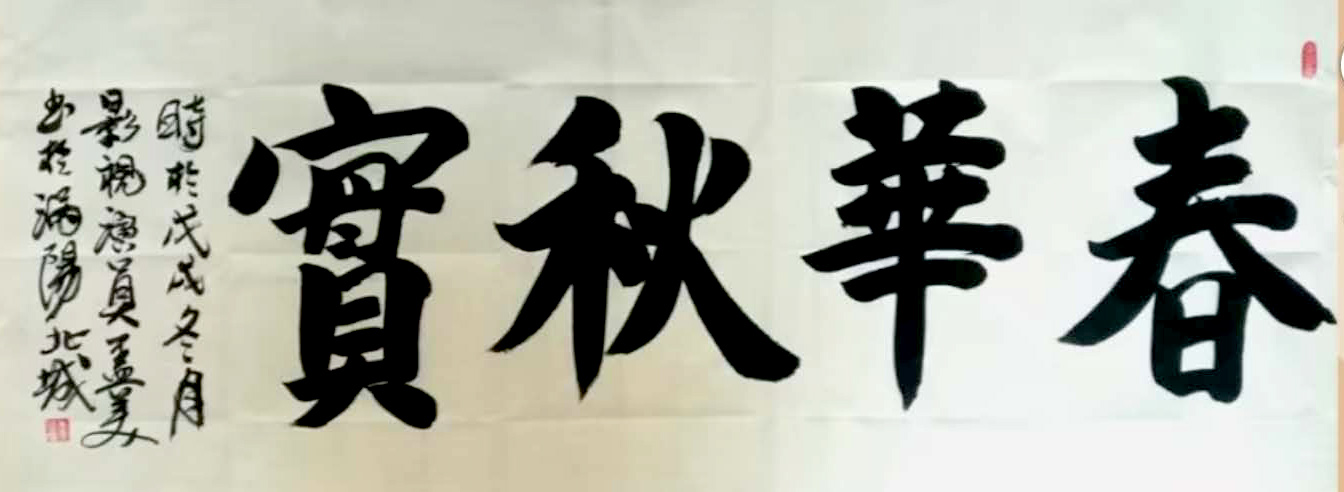 春華秋實
時於戊戌冬月
影視演員孟美
书於瀋陽北城